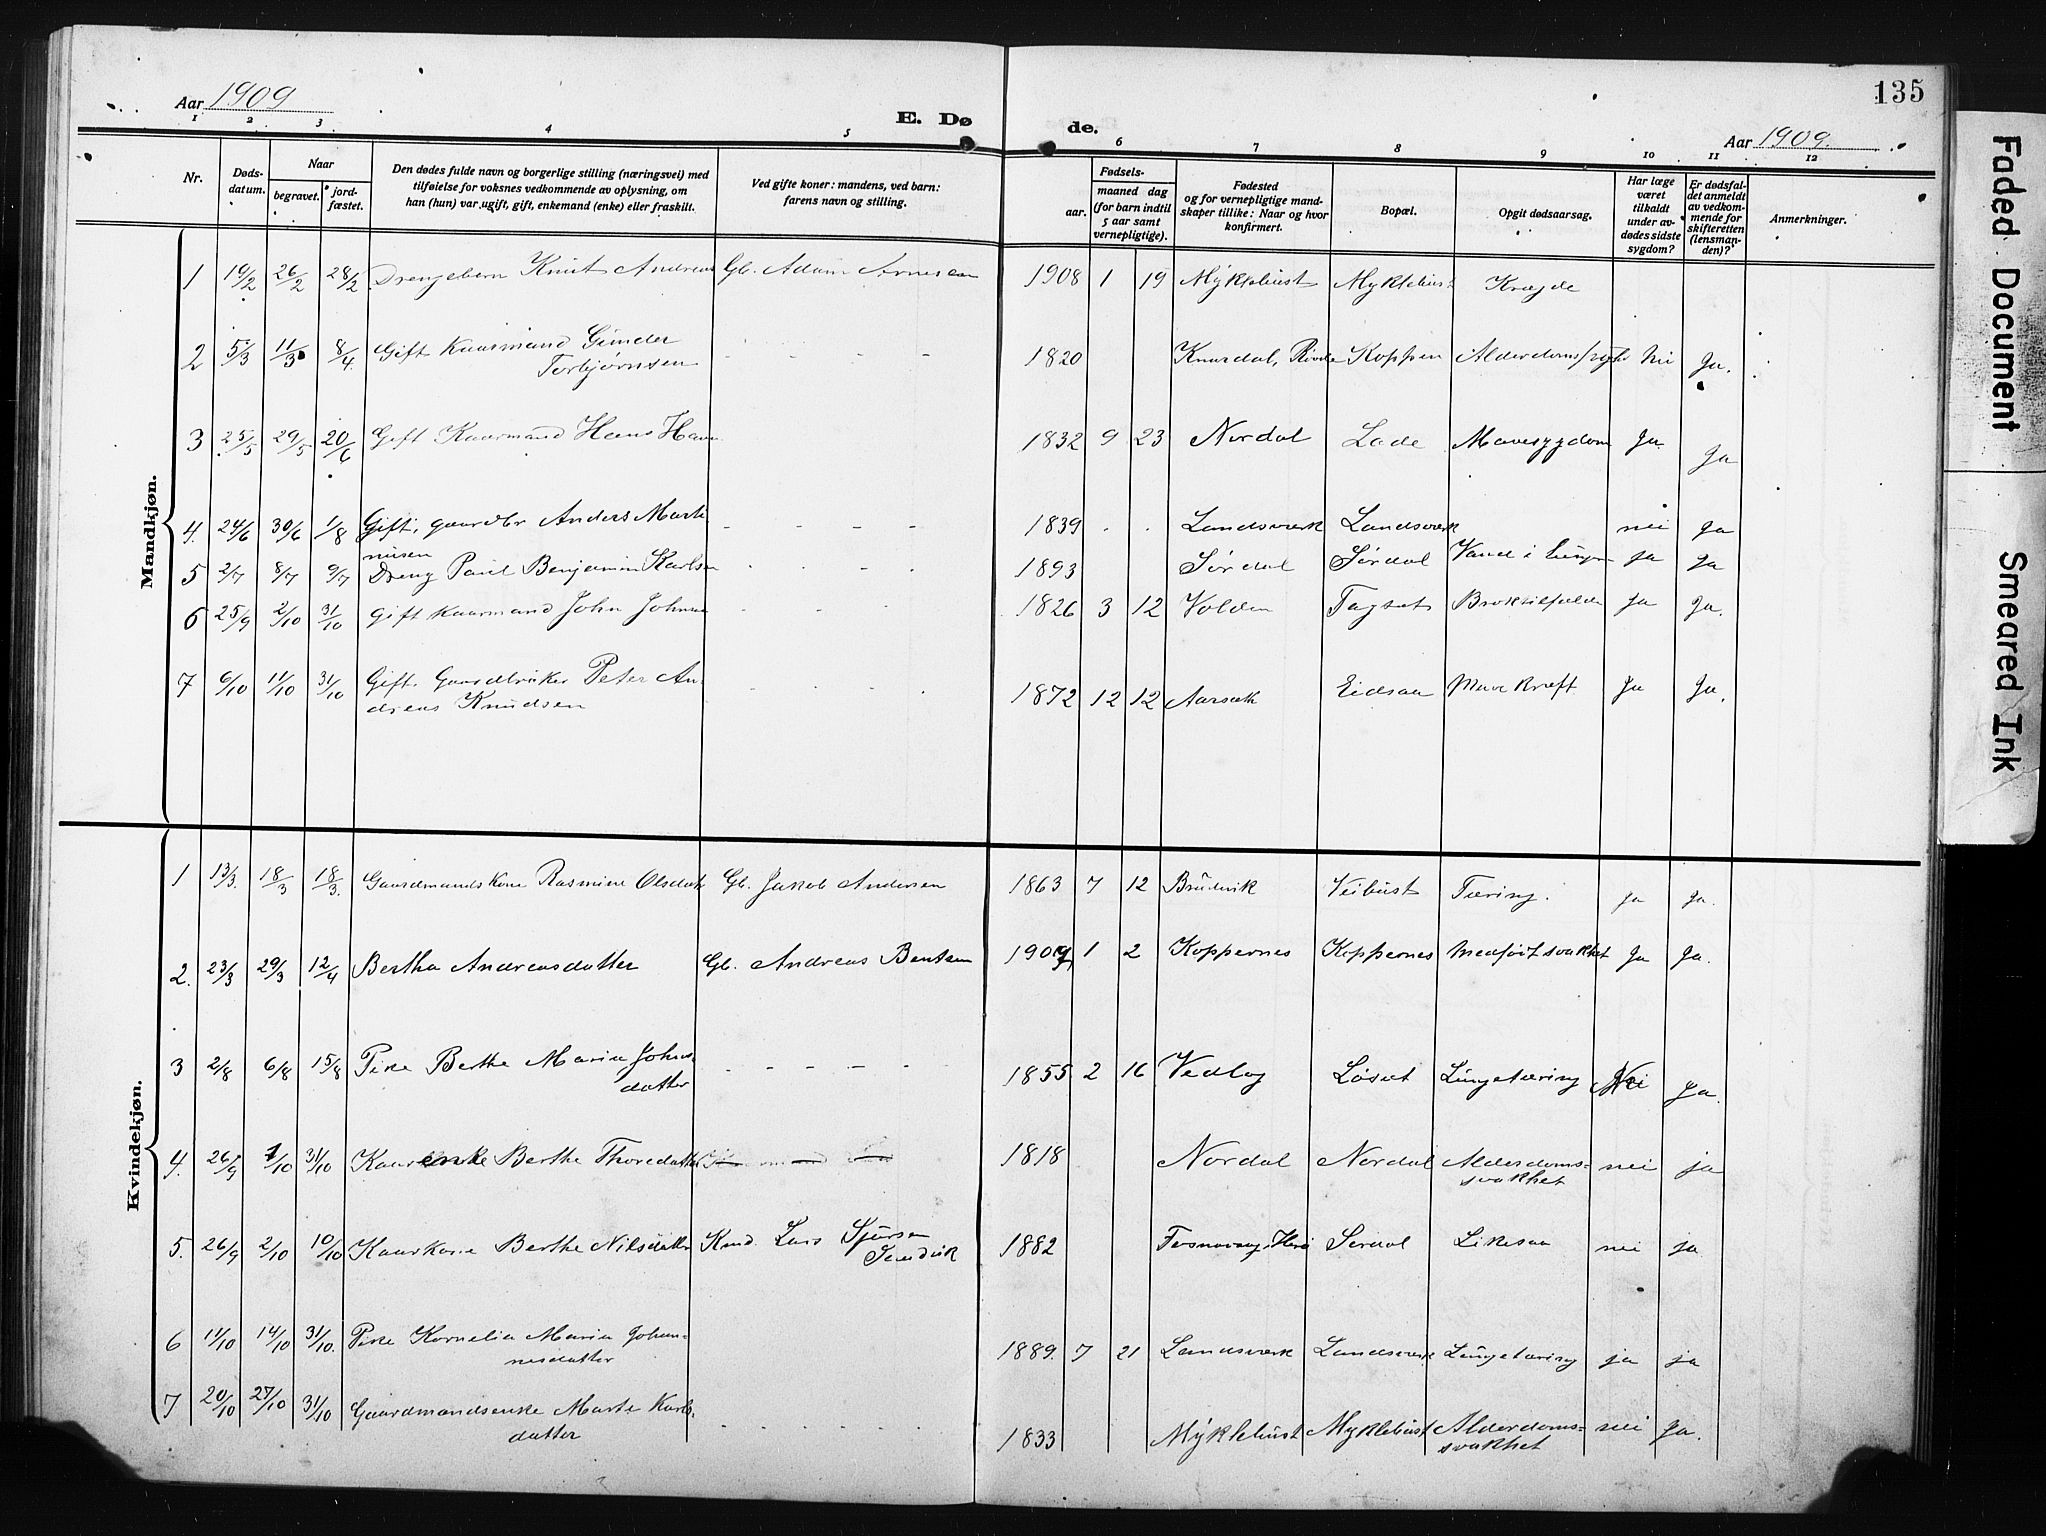 135
Aar 1909
E. Døde.
Aar 1909.
1 2 3 4 5 6 7 8 9 10 11 12
Nr.
Døds-
datum.
Naar
begravet.
jord-
fæstet.
Den dødes fulde navn og borgerlige stilling (næringsvei) med
tilføielse for voksnes vedkommende av oplysning, om
han (hun) var ugift, gift, enkemand (enke) eller fraskilt.
Ved gifte koner: mandens, ved barn:
farens navn og stilling.
Fødsels-
aar.
maaned dag
(for barn indtil
5 aar samt
vernepligtige).
Fødested
og for vernepligtige mand-
skaper tillike: Naar og hvor
konfirmert.
Bopæl.
Opgit dødsaarsag.
Har læge
været
tilkaldt
under av-
dødes sidste
sygdom?
Er dødsfal-
det anmeldt
av vedkom-
mende for
skifteretten
(lensman-
den)?
Anmerkninger.
Mandkjøn.
1 19/2 26/2 28/2 Drengebarn Knut Andreas Gb. Adam Arnesen 1908 1 19 Myklebust Myklebust
2 5/3 11/3 8/4. Gift Kaarmand
Torbjørnsen - - - - 1820 Knardal, Koppen nei Ja.
3 25/5 29/5 20/6 Gift Kaarmand Hans 1832 9 23 Nordal Lade Mavesygdom Ja. Ja
4. 24/6 30/6 1/8 Gift, gaardbr Anders Marti
nusen - - - - 1839 . . Landsverk Landsverk nei Ja
5 2/7 8/7 9/7 Dreng Paul Benjamin Karlsen - - - - 1893 Sørdal Sørdal Vand i ja Ja
6 25/9 2/10 31/10 Gift Kaarmand John - - - - 1826 3 12 Volden ja Ja.
7 6/10 11/10 31/10 Gift, Gaardbruker Peter An-
dreas Knudsen - - - - 1872 12 12 Eidsaa Mave Kræft Ja Ja.
Kvindekjøn.
1 13/3. 18/3 18/3. Gaardmandskone Rasmine Olsdatr Gb. Jakob Andersen 1863 7 12 Brudevik Veibust Tæring. ja Ja.
2. 23/3 29/3 12/4 Bertha Andreasdatter Gb. Andreas Bentsen 1 2 Koppernes Koppernes Medfødt svakhet Ja Ja.
3 2/8 6/8 15/8 Pike Berthe Marie Johns-
datter - - - - 1855 2 16 Vedlog Løset Lungetæring Nei Ja.
4. 26/9 1/10 31/10 Kaarenke Berthe Thoredatter 1818 Nordal Nordal Alderdoms-
svakhet nei ja
5. 26/9 2/10 10/10 Kaarkone Berthe Nilsdatter Kmd. Lars Sjursen
1882 nei ja
6 11/10 14/10 31/10. Pike Kornelia Marie Johan-
nesdatter 1889. 7 21 Landsverk Landsverk Lungetæring ja ja
7 20/10 27/10 31/10 Gaardmandsenke Marte Karls-
datter - - - - 1833 Myklebust Myklebust Alderdoms-
svakhet nei Ja.
Faded Document
Smeared Ink